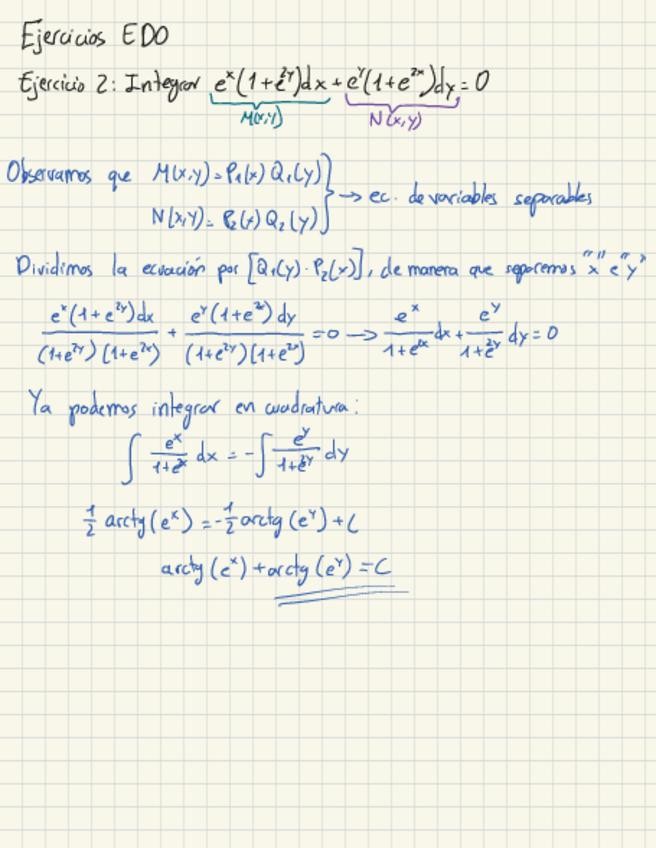 Ejercicios EDO
Ejercicio 2: Integrar e^x(1+e^{2y})dx + e^y(1+e^{2x})dy = 0
M(x,y) N(x,y)
Observamos que M(x,y) = P₁(x) Q₁(y)
N(x,y) = P₂(x) Q₂(y) } → ec. de variables separables
Dividimos la ecuación por [Q₁(y) · P₂(x)], de manera que separemos "x" e "y"
e^x(1+e^{2y})dx / (1+e^{2y})(1+e^{2x}) + e^y(1+e^{2x})dy / (1+e^{2y})(1+e^{2x}) = 0 → e^x / 1+e^{2x} dx + e^y / 1+e^{2y} dy = 0
Ya podemos integrar en cuadratura:
∫ e^x / 1+e^{2x} dx = -∫ e^y / 1+e^{2y} dy
1/2 arctg(e^x) = -1/2 arctg(e^y) + C
arctg(e^x) + arctg(e^y) = C